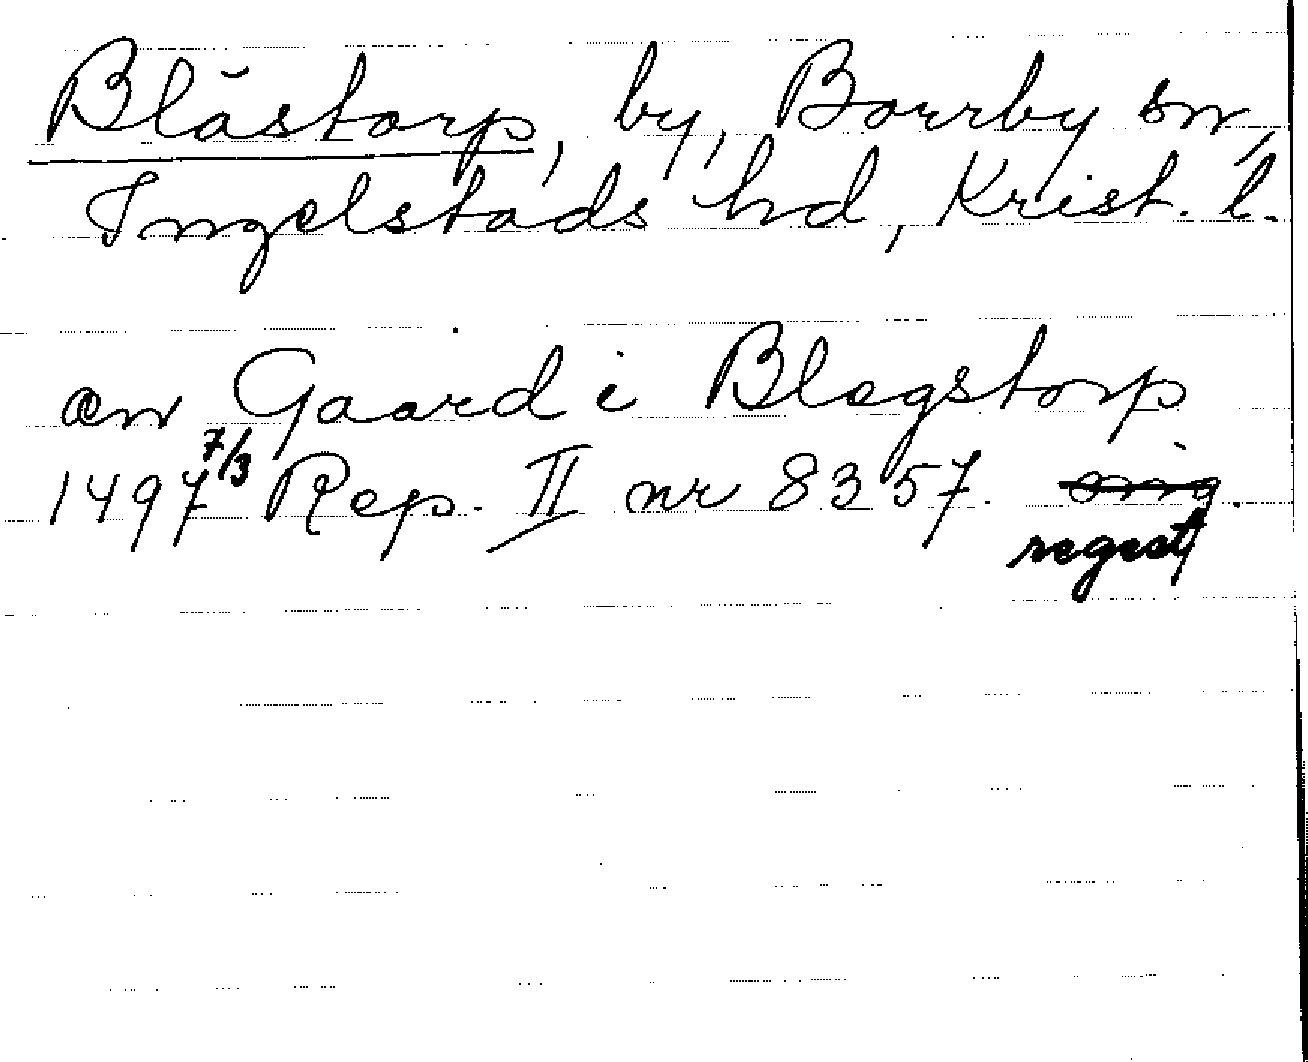 Blåstorp, by, Borrby sn,
Ingelstads hd, Krist. l.
en Gaard i Blegstorp
1497 7/3 Rep. II nr 8357. orig.
regest